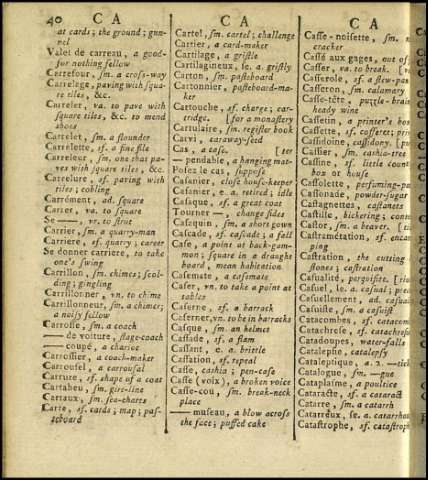 40 C A
C A
C A
at cards; the ground; gun-
nel
Valet de carreau, a good-
for nothing fellow
Carrefour, sm. a cross-way
Carrelage, paving with squa-
re tiles, &c.
Carreler, va. to pave with
square tiles, &c. to mend
shoes
Carrelet, sm. a flounder
Carrelette, sf. a fine file
Carreleur, sm. one that pa-
ves with square tiles, &c.
Carrelure, sf. paving with
tiles; cobling
Carrément, ad. square
Carrer, va. to square
Se ——, vn. to strut
Carrier, sm. a quarry-man
Carriere, sf. quarry; career
Se donner carriere, to take
one's swing
Carrillon, sm. chimes; scol-
ding; gingling
Carrillonner, vn. to chime
Carrillonneur, sm. a chimer;
a noisy fellow
Carrosse, sm. a coach
—— de voiture, stage-coach
—— coupé, a chariot
Carrossier, a coach-maker
Carrousel, a carrousal
Carrure, sf. shape of a coat
Cartahu, sm. girt-line
Cartaux, sm. sea-charts
Carte, sf. cards; map; pas-
teboard
Cartel, sm. cartel; challenge
Cartier, a card-maker
Cartilage, a gristle
Cartilagineux, se. a. gristly
Carton, sm. pasteboard
Cartonnier, pasteboard-ma-
ker
Cartouche, sf. charge; car-
tridge. [for a monastery
Cartulaire, sm. register book
Carvi, caraway-seed
Cas, a case. [ter
— pendable, a hanging mat-
Posez le cas, suppose
Casanier, close house-keeper
Casanier, e. a. retired; idle
Casaque, sf. a great coat
Tourner —, change sides
Casaquin, sm. a short gown
Cascade, sf. cascade; a fall
Case, a point at back-gam-
mon; square in a draught
board, mean habitation
Casemate, a casemate
Caser, vn. to take a point at
tables
Caserne, sf. a barrack
Caserner, vn. to be in barracks
Casque, sm. an helmet
Cassade, sf. a flam
Cassant, e. a. brittle
Cassation, sf. repeal
Casse, cashia; pen-case
Casse (voix), a broken voice
Casse-cou, sm. break-neck
place
—— museau, a blow across
the face; puffed cake
Casse-noisette, sm. n
cracker
Cassé aux gages, out of
Casser, va. to break. [v
Casserole, sf. a stew-pa
Casseron, sm. calamary
Casse-tête, puzzle-brain
heady wine
Cassetin, a printer's bo
Cassette, sf. cofferet; pri
Cassidoine, cassidony. [p
Cassier, sm. cashia-tree
Cassine, sf. little count
box or house
Cassolette, perfuming-p
Cassonade, powder-sugar
Castagnettes, castanets
Castille, bickering; conte
Castor, sm. a beaver. [ti
Castramétation, sf. encam
ping
Castration, the cutting
stones; castration
Casualité, perquisite. [tin
Casuel, le. a. casual; prec
Casuellement, ad. casual
Casuiste, sm. a casuist
Catacombes, sf. catacom
Catachrese, sf. catachresi
Catadoupes, water-falls
Catalepsie, catalepsy
Cataleptique, a. —tick
Catalogue, sm. —gue
Cataplaîme, a poultice
Cataracte, sf. a cataract
Catarre, sm. a catarrh
Catarreux, se. a. catarrhou
Catastrophe, sf. catastroph